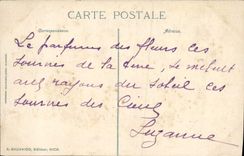 CARTE POSTALE
Correspondance Adresse
Le parfums des fleurs ces
sourires de la terre, se mêlent
aux rayons du soleil ces
sourires des Cieux
Suzanne
NICE